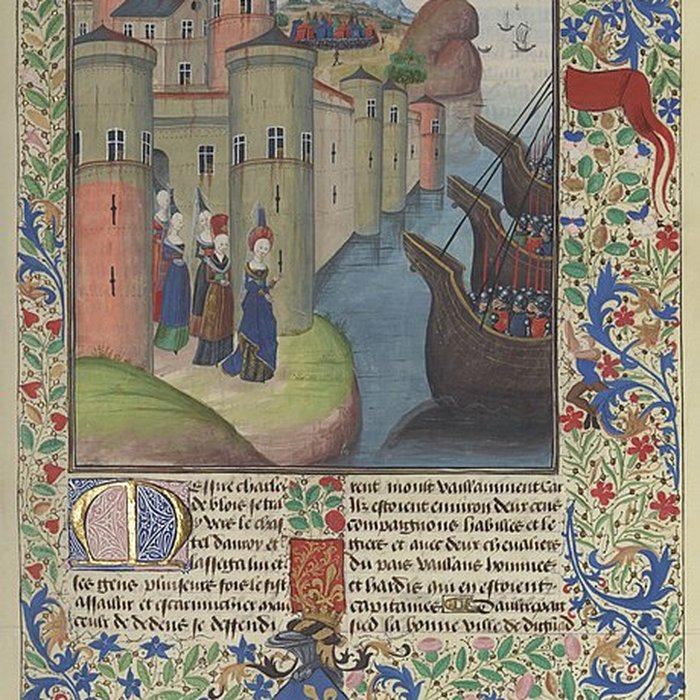 Messire charles
de blois se trai
y vers le chas
tel dauroy et
lassega lui et
ses gens pluseurs fois le fist
assallir et escarmuchier mais
ceulx de dedens se deffendi
rent moult vaillamment Car
ilz estoient environ deux cens
compaignons habilles et le
giers et avec deux chevaliers
du pais vaillans hommes
et hardis qui en estoient
capitaines Daultrepart
sied la bonne ville de dignad